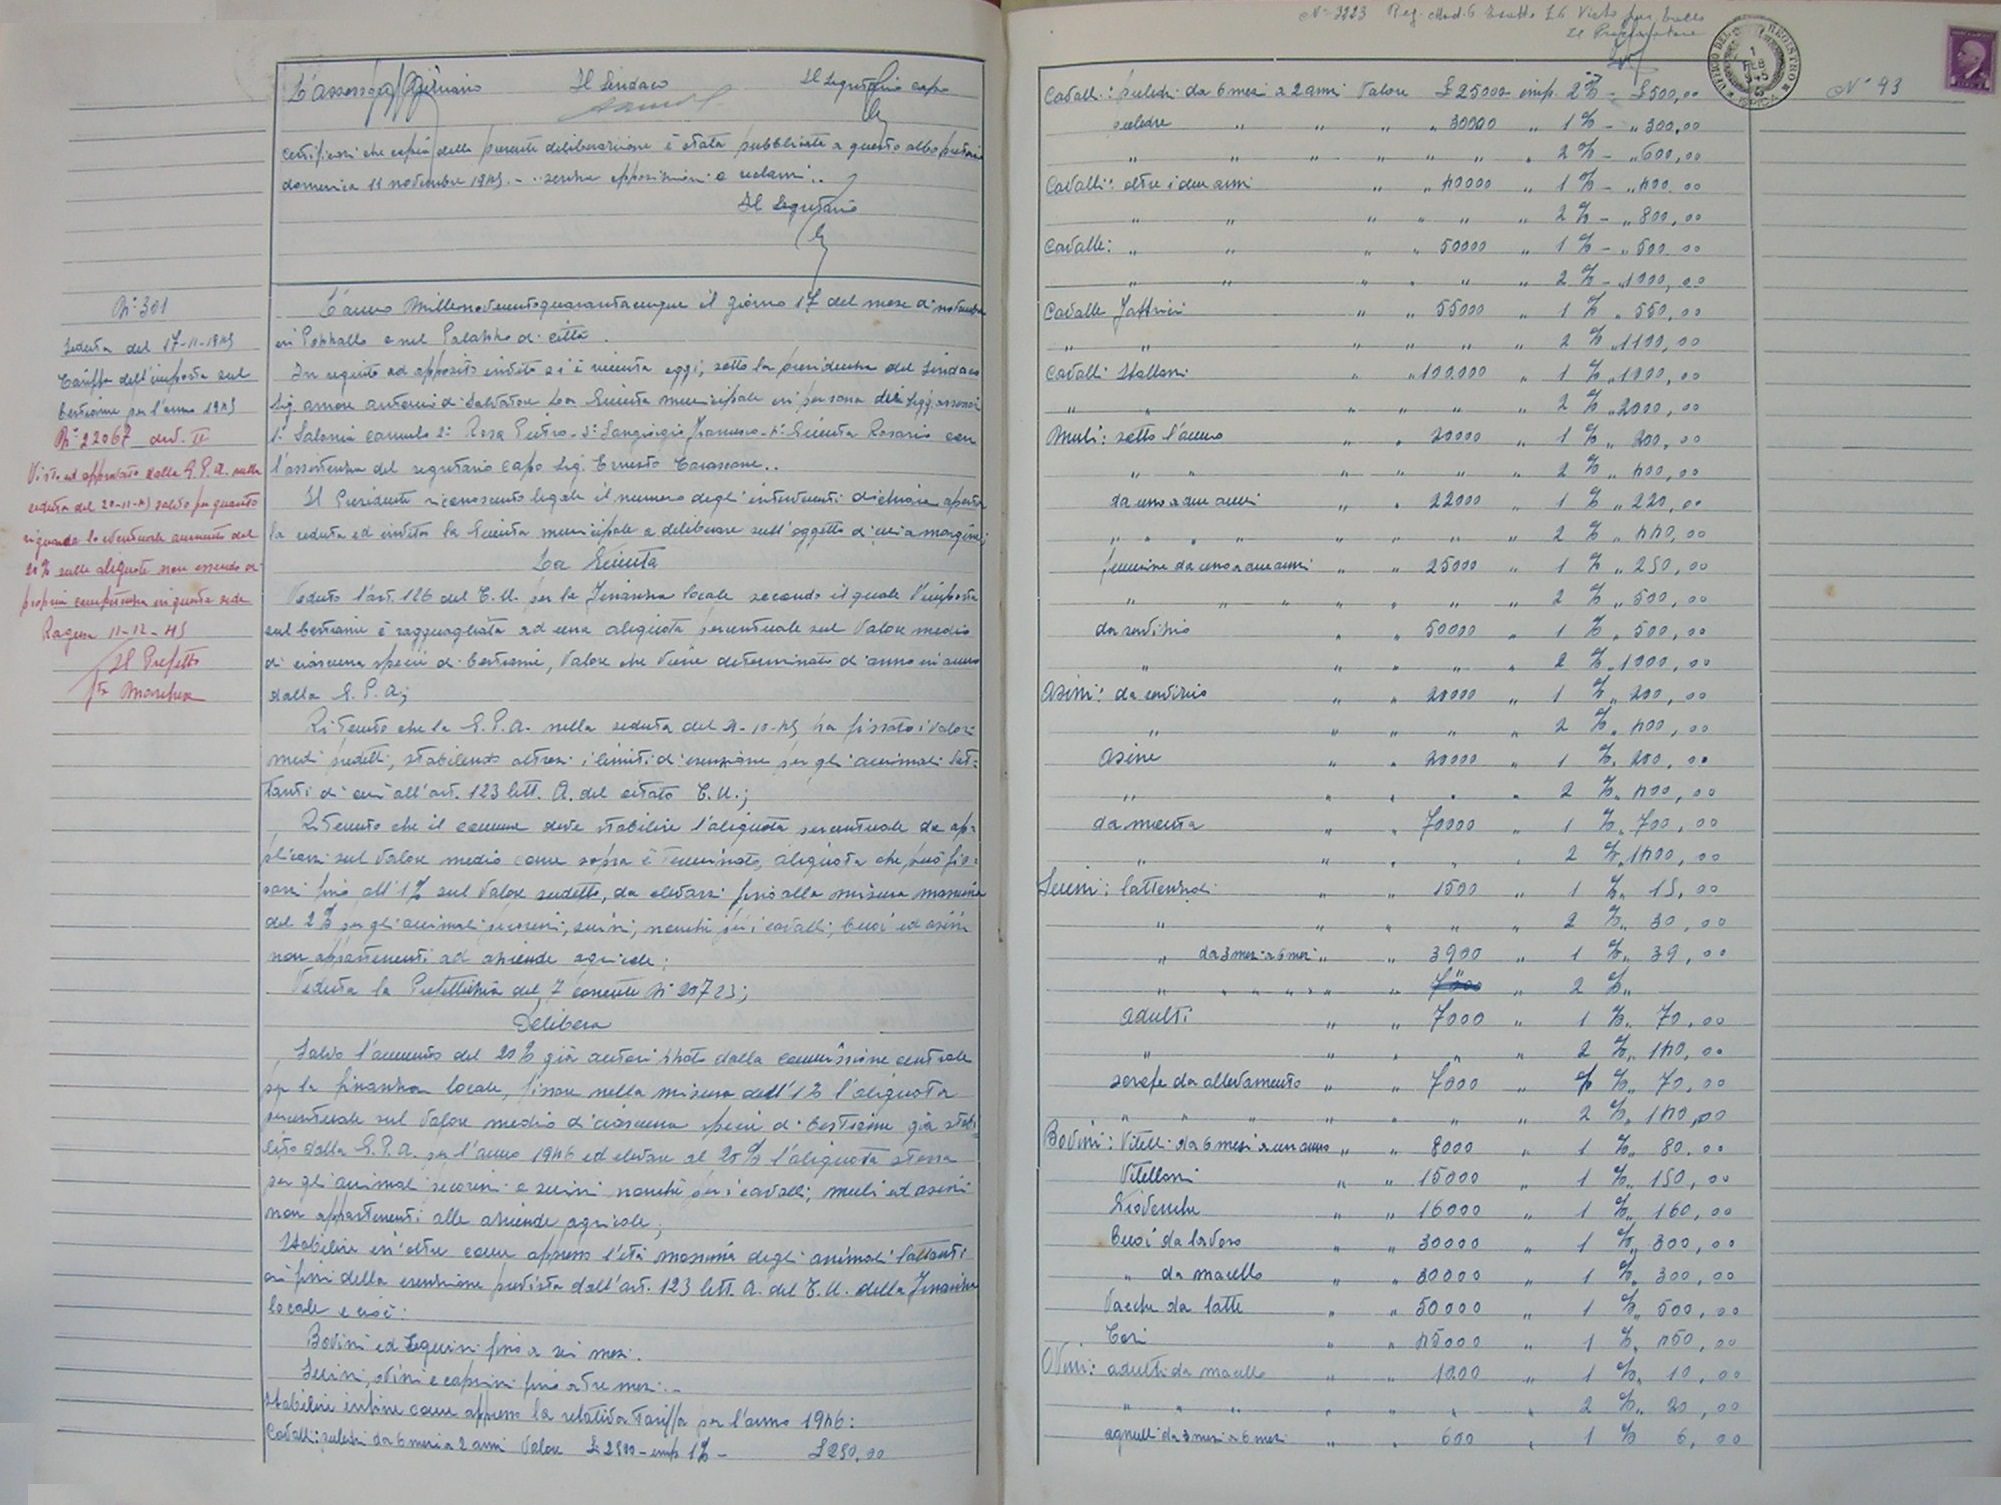 L'assessore Anziano Il Sindaco Il Segretario capo
Certificasi che copia della presente deliberazione è stata pubblicata a questo albo pretorio
domenica 11 novembre 1945. - senza opposizioni o reclami..
Il Segretario
N° 301
Seduta del 17-11-1945
Tariffa dell'imposta sul
bestiame per l'anno 1945
N° 22067 div. II
Visto ed approvato dalla G.P.A. nella
seduta del 20-11-45 salvo per quanto
riguarda l'eventuale aumento del
20% sulle aliquote non essendo di
propria competenza in questa sede
Ragusa 11-12-45
Il Prefetto
L'anno Millenovecentoquarantacinque il giorno 17 del mese di novembre
in Pozzallo e nel Palazzo di città.
In seguito ad apposito invito si è riunita oggi, sotto la presidenza del Sindaco
Sig. Amore Antonio di Salvatore La Giunta municipale in persona dei Sigg. assessori
1° Salonia Carmelo 2° Rosa Pietro - 3° Sangiorgio Francesco - 4° Giunta Rosario con
l'assistenza del segretario capo Sig. Ernesto
Il Presidente riconosciuto legale il numero degli intervenuti dichiara aperta
la seduta ed invita la Giunta municipale a deliberare sull'oggetto di cui a margine;
La Giunta
Veduto l'art. 126 del T.U. per la Finanza locale secondo il quale l'imposta
sul bestiame è ragguagliata ad una aliquota percentuale sul valore medio
di ciascuna specie di bestiame, valore che viene determinato di anno in anno
dalla G.P.A;
Ritenuto che la G.P.A. nella seduta del 4-10-45 ha fissato i valori
medi predetti, stabilendo altresì i limiti di esenzione per gli animali lat=
tanti di cui all'art. 123 lett. A. del citato T.U.;
Ritenuto che il comune deve stabilire l'aliquota percentuale da ap=
plicarsi sul valore medio come sopra determinato, aliquota che può fis=
sarsi fino all'1% sul valore suddetto, da elevarsi fino alla misura massima
del 2% per gli animali pecorini, suini, nonché per i cavalli, buoi ed asini
non appartenenti ad aziende agricole;
Veduta la Prefettizia del 7 corrente N° 20723;
Delibera
Salvo l'aumento del 20% già autorizzato dalla commissione centrale
per la finanza locale, fissare nella misura dell'1% l'aliquota
percentuale sul valore medio di ciascuna specie di bestiame già stabi=
lito dalla G.P.A. per l'anno 1946 ed elevare al 20% l'aliquota stessa
per gli animali pecorini e suini nonché per i cavalli; muli ed asini
non appartenenti alle aziende agricole;
Stabilire in oltre come appresso l'età massima degli animali lattanti
ai fini della esenzione prevista dall'art. 123 lett. A. del T.U. della Finanza
locale e cioè:
Bovini ed Equini fino a sei mesi.
Suini, ovini e caprini fino a tre mesi.-
Stabilire infine come appresso la relativa tariffa per l'anno 1946:
Cavalli: puledri da 6 mesi a 2 anni Valore £ 2500 - imp 1% - £ 250,00
N° 3223 Reg. Mod. 6 Visto per bollo
Il Procuratore
UFFICIO DEL REGISTRO
N° 93
Cavalli: puledri da 6 mesi a 2 anni Valore £ 25000 imp. 2% - £ 500,00
puledre " " " " 30000 " 1% - " 300,00
" " " " " " " 2% - " 600,00
Cavalli: oltre i due anni " " 40000 " 1% - " 400,00
" " " " " " 2% - " 800,00
Cavalle: " " " " 50000 " 1% - " 500,00
" " " " " " 2% - " 1000,00
Cavalle Fattrici " " 55000 " 1% " 550,00
" " " " " " 2% " 1100,00
Cavalli Stalloni " " 100.000 " 1% " 1000,00
" " " " " " 2% " 2000,00
Muli: sotto l'anno " " 20000 " 1% " 200,00
" " " " " " 2% " 400,00
da uno a due anni " " 22000 " 1% " 220,00
" " " " " " " " 2% " 440,00
femmine da uno a due anni " " 25000 " 1% " 250,00
" " " " " " " " 2% " 500,00
da servizio " " 50000 " 1% " 500,00
" " " " " 2% " 1000,00
Asini: da servizio " " 20000 " 1% " 200,00
" " " " " 2% " 400,00
Asine " " 20000 " 1% " 200,00
" " " " " 2% " 400,00
da monta " " 70000 " 1% " 700,00
" " " " " 2% " 1400,00
Suini: lattonzoli " " 1500 " 1% " 15,00
" " " " " 2% " 30,00
" da 3 mesi a 6 mesi " " 3900 " 1% " 39,00
" " " " " " " 7000 " 2% "
Adulti " " 7000 " 1% " 70,00
" " " " " 2% " 140,00
scrofe da allevamento " " 7000 " 1% " 70,00
" " " " " " " 2% " 140,00
Bovini: Vitelli da 6 mesi a un anno " " 8000 " 1% " 80,00
Vitelloni " " 15000 " 1% " 150,00
Giovenche " " 16000 " 1% " 160,00
Buoi da lavoro " " 30000 " 1% " 300,00
" da macello " " 30000 " 1% " 300,00
Vacche da latte " " 50000 " 1% " 500,00
Tori " " 45000 " 1% " 450,00
Ovini: adulti da macello " " 1000 " 1% " 10,00
" " " " " " " 2% " 20,00
agnelli da 3 mesi a 6 mesi " " 600 " 1% 6,00